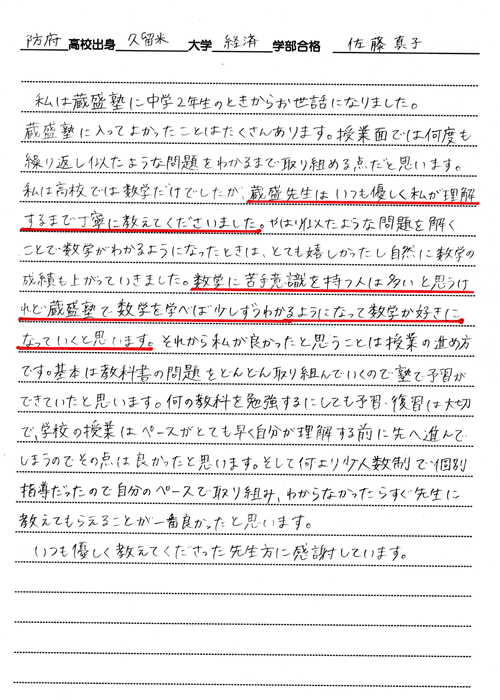 防府高校出身 久留米大学 経済学部合格 佐藤真子
私は蔵盛塾に中学2年生のときからお世話になりました。
蔵盛塾に入ってよかったことはたくさんあります。授業面では何度も
繰り返し似たような問題をわかるまで取り組める点だと思います。
私は高校では数学だけでしたが、蔵盛先生はいつも優しく私が理解
するまで丁寧に教えてくださいました。やはり似たような問題を解く
ことで数学がわかるようになったときは、とても嬉しかったし自然に数学の
成績も上がっていきました。数学に苦手意識を持つ人は多いと思うけ
れど蔵盛塾で数学を学べば少しずつわかるようになって数学が好きに
なっていくと思います。それから私が良かったと思うことは授業の進め方
です。基本は教科書の問題をどんどん取り組んでいくので塾で予習が
できていたと思います。何の教科を勉強するにしても予習・復習は大切
で、学校の授業はペースがとても早く自分が理解する前に先へ進んで
しまうのでその点は良かったと思います。そして何より少人数制で個別
指導だったので自分のペースで取り組み、わからなかったらすぐ先生に
教えてもらえることが一番良かったと思います。
いつも優しく教えてくださった先生方に感謝しています。